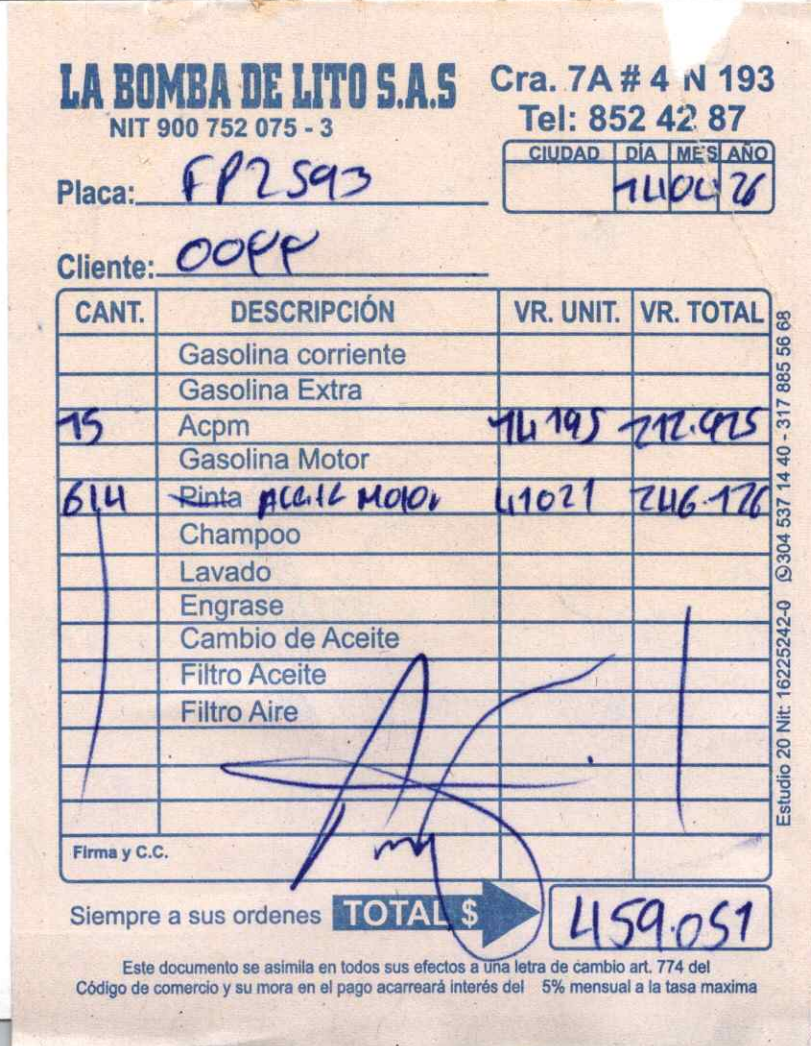 LA BOMBA DE LITO S.A.S
NIT 900 752 075 - 3
Cra. 7A # 4 N 193
Tel: 852 42 87
CIUDAD DÍA MES AÑO
14 04 26
Placa: FPZ593
Cliente: OOPP
CANT. DESCRIPCIÓN VR. UNIT. VR. TOTAL
Gasolina corriente
Gasolina Extra
15 Acpm 14195 212.925
Gasolina Motor
61/4 Pinta Aceite Motor 41021 246.126
Champoo
Lavado
Engrase
Cambio de Aceite
Filtro Aceite
Filtro Aire
Firma y C.C.
Siempre a sus ordenes TOTAL $ 459.051
Este documento se asimila en todos sus efectos a una letra de cambio art. 774 del
Código de comercio y su mora en el pago acarreará interés del 5% mensual a la tasa maxima
Estudio 20 Nit: 16225242-0 304 537 14 40 - 317 885 56 68